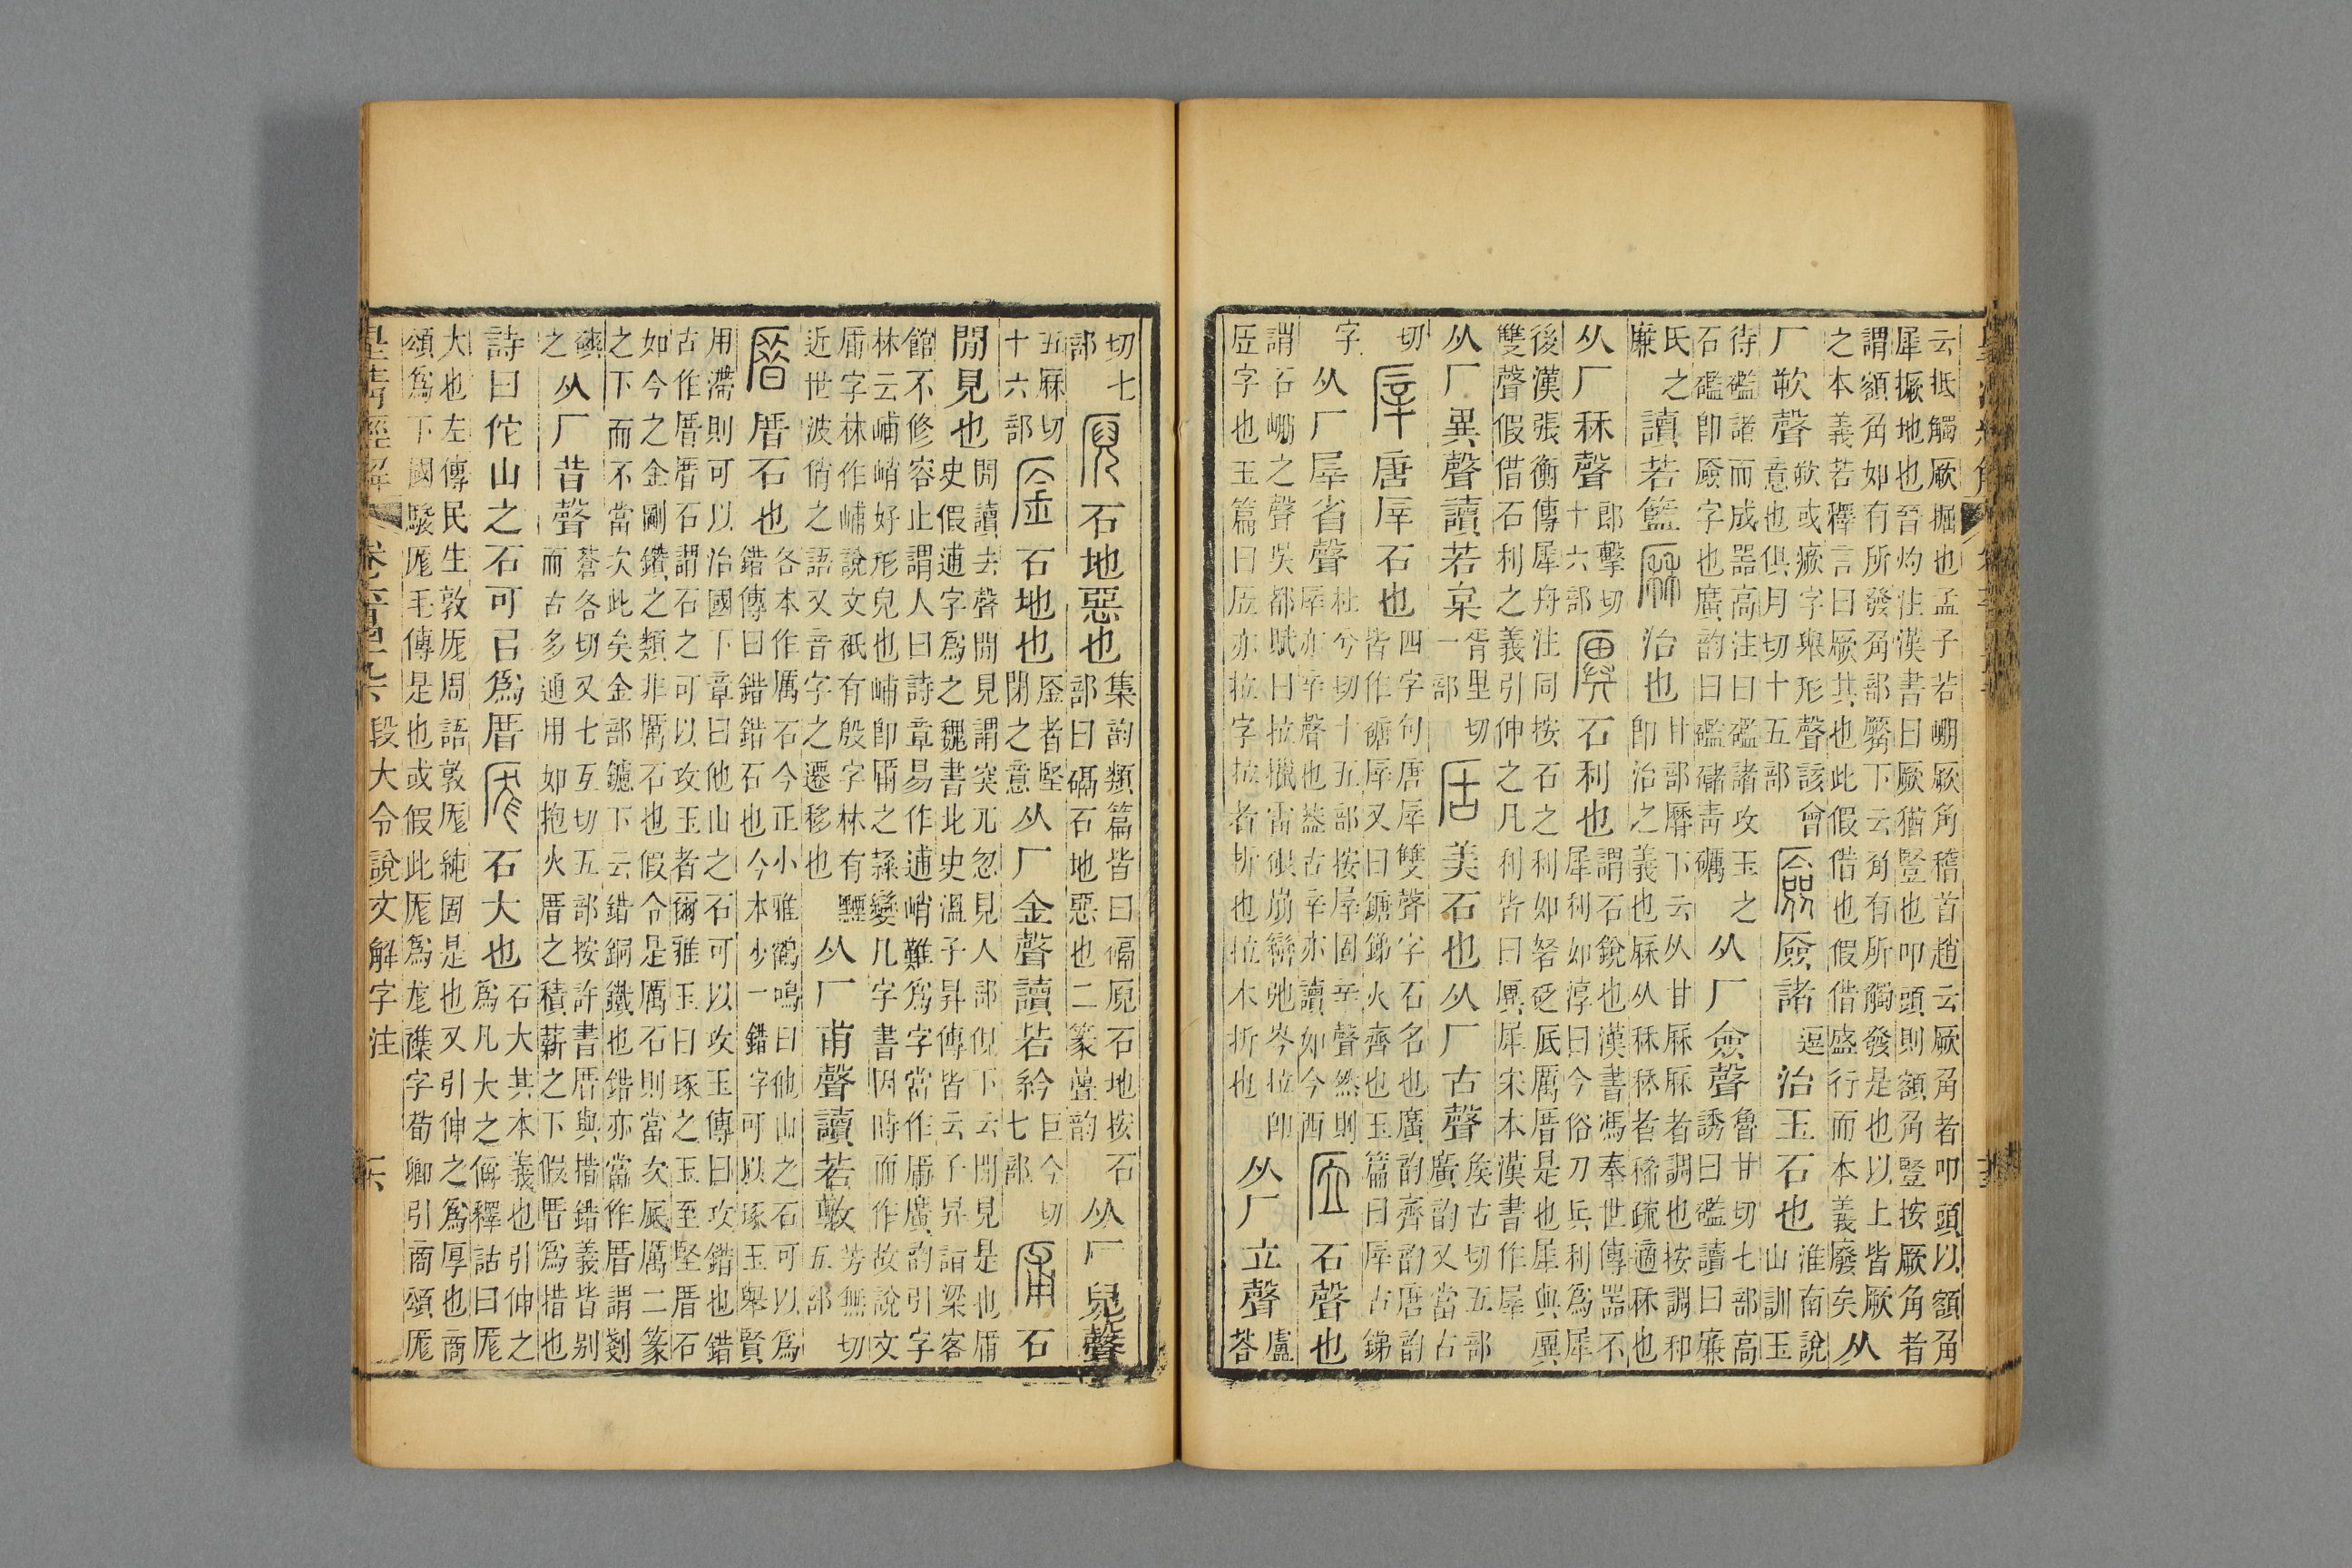 云抵觸厥掘也孟子若崩厥角稽首趙云厥角者叩頭以額角
犀撅地也晉灼注漢書曰厥猶豎也叩頭則額角豎按厥角者
謂額角如有所發角部𧤼下云角有所觸發是也以上皆厥
之本義若釋言曰厥其也此假借也假借盛行而本義廢矣 从
厂欮聲 欮或瘚字與形聲該會意也俱月切十五部 厱 厱諸 逗 治玉石也 淮南說山訓玉
待礛諸而成器高注曰礛諸攻玉之
石礛卽厱字也廣韵曰礛䃴靑礪 从厂僉聲 魯甘切七部高誘曰礛讀曰廉
氏之廉 讀若籃 厤 治也 甘部曆下云从甘厤厤者調也按調和卽治之義也厤从秝秝者稀疏適秝也
从厂秝聲 郎擊切十六部 㕡 石利也 謂石銳也漢書馮奉世傳器不犀利如淳曰今俗刀兵利爲犀
後漢張衡傳犀舟注同按石之利如砮砭厎厲厝是也犀與㕡
雙聲假借石利之義引伸之凡利皆曰㕡犀宋本漢書作犀
从厂異聲讀若枲 胥里切一部 㕆 美石也从厂古聲 矦古切五部廣韵又當古
切 厗 唐厗石也 四字句唐厗雙聲字石名也廣韵齊韵唐韵皆作磄厗又曰鎕銻火齊也玉篇曰厗古銻
字 从厂屖省聲 杜兮切十五部按屖固辛聲然則厗亦辛聲也葢古辛亦讀如今西 㕇 石聲也
謂石崩之聲吳都賦曰拉擸雷硠崩巒弛岑拉卽
㕇字也玉篇曰㕇亦拉字拉者折也拉木折也 从厂立聲 盧荅
切七部 㕒 石地惡也 集韵類篇皆曰 石地按石 部曰碼石地惡也二篆 韵 从厂兒聲
五厤切十六部 㕋 石地也 㕋者堅閉之意 从厂金聲讀若紟 巨今切七部 㕊 石
閒見也 閒讀去聲閒見謂突兀忽見人部俔下云閒見是也㕊史假逋字爲之魏書北史溫子昇傳皆云子昇詣梁客
館不修容止謂人曰詩章易作逋峭難爲字當作㕊廣韵引字
林云峬峭好形皃也峬卽㕊之隸變凡字書因時而作故說文
㕊字林作峬說文祇有殷字林有黫
近世波俏之語又音字之遷移也 从厂甫聲讀若敷 芳無切五部
厝 厝石也 各本作厲石今正小雅鶴鳴曰他山之石可以爲錯傳曰錯錯石也今本少一錯字可以琢玉舉賢
用滯則可以治國下章曰他山之石可以攻玉傳曰攻錯也錯
古作厝厝石謂石之可以攻玉者爾雅玉曰琢之玉至堅厝石
如今之金剛鑽之類非厲石也假令是厲石則當次厎厲二篆
之下而不當次此矣金部鑢下云錯銅鐵也錯亦當作厝謂剗
磢之 从厂昔聲 蒼各切又七互切五部按許書厝與措錯義皆別而古多通用如抱火厝之積薪之下假厝爲措也
詩曰佗山之石可㠯爲厝 厖 石大也 石大其本義也引伸之爲凡大之偁釋詁曰厖
大也左傳民生敦厖周語敦厖純固是也又引伸之爲厚也商
頌爲下國駿厖毛傳是也或假此厖爲尨襍字荀卿引商頌厖
皇清經解 卷六百四十九下 段大令說文解字注